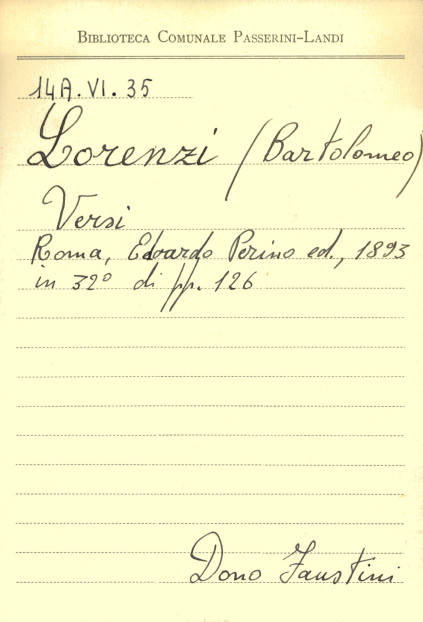 Biblioteca Comunale Passerini-Landi
14A.VI.35
Lorenzi (Bartolomeo)
Versi
Roma, Edoardo Perino ed., 1893
in 32º di pp. 126
Dono Faustini